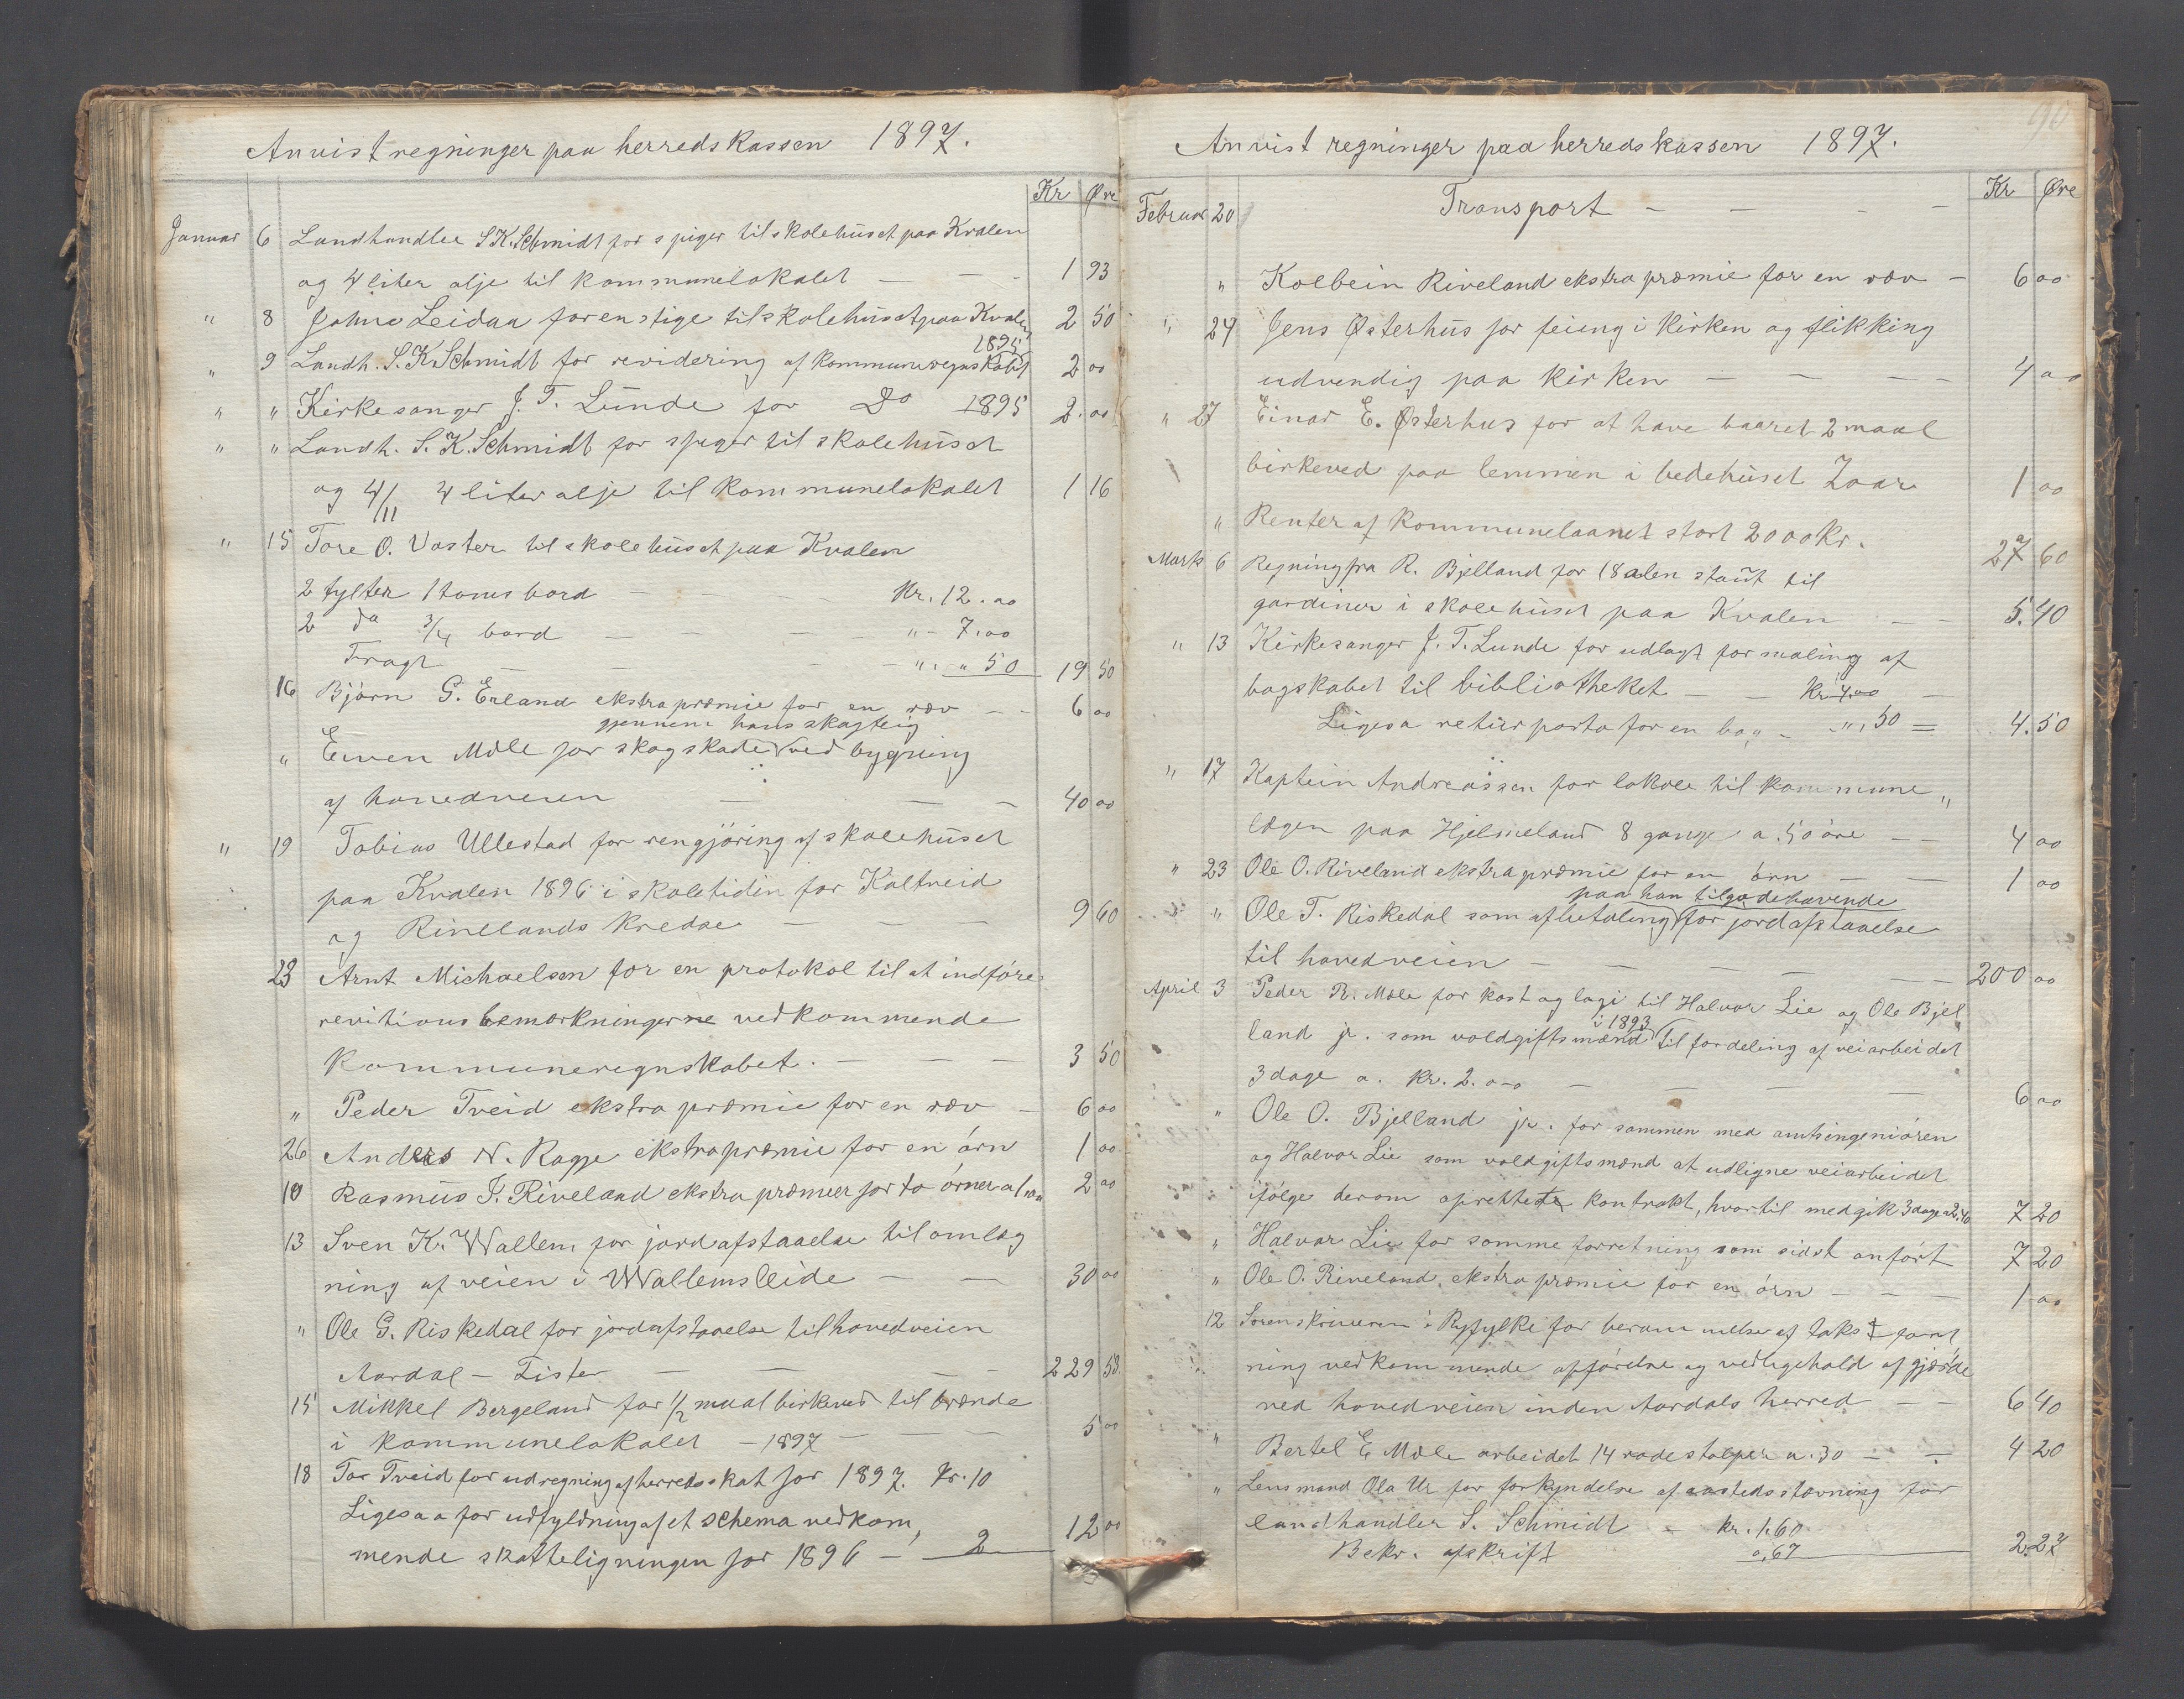 Anvist regninger paa herredskassen 1897.
Kr Øre
Januar 6 Landhandler S.K. Schmidt for spiger til skolehuset paa Kvalen
og 4 liter olje til kommunelokalet — — - 1 93
" 8 Johne Leidaa for en stige til skolehuset paa Kvalen 2 50
1895
" 9 Landh. S. K. Schmidt for revidering af kommuneregnskabet 2 00
" " Kirkesanger J. T. Lunde for Do 1895 2.00
" " Landh. S. K. Schmidt for spiger til skolehuset
og 4/11 4 liter olje til kommunelokalet 1 16
" 15 Tore O. Voster til skolehuset paa Kvalen
2 tylter 1 toms bord — — — Kr. 12.00
2 do 3/4 bord — — — " - 7.00
Fragt — — — " . " 50 19 50
16 Bjørn G. Erland ekstrapræmie for en ræv - - 6 00
gjennem hans skogteig
" Even Mæle for skogskade ved bygning
af hovedveien — — — 40 00
" 19 Tobias Ullestad for rengjøring af skolehuset
paa Kvalen 1896 i skoletiden for Kaltveid
og Rivelands kredse — — — 9 60
23 Arnt Michaelsen for en protokol til at indføre
revitionsbemærkningerne vedkommende
Kommuneregnskabet. — — — 3 50
" Peder Tveid ekstra præmie for en ræv — 6 00
26 Anders N. Rage ekstrapræmie for en ørn 1 00
10 Rasmus T. Riveland ekstra præmeer for to ørner a 1.00 2 00
13 Sven K. Wallem for jordafstaaelse til omlæg
ning af veien i Wallemsleide — — 30 00
" Ole G. Riskedal for jordafstaaelse til hovedveien
Aardal – Fister — — — 229 53
15 Mikkel Bergeland for 1/2 maal birkeved til brænde
i kommunelokalet — 1897 — — — 5 00
18 Tor Tveid for udregning af herredsskat for 1897. Kr. 10
Ligesaa for udfyldning af et schema vedkom,
mende skatteligningen for 1896 — 2 12 00
90
Anvist regninger paa herredskassen 1897.
Kr Øre
Februar 20 Transport — — — —
" Kolbein Riveland ekstra præmie for en ræv — 6 00
" 24 Jens Østerhus for feiing i kirken og flikking
udvendig paa kirken — — — — 4 00
" 27 Einar E. Østerhus for at have baaret 2 maal
birkeved paa lemmen i bedehuset Zoar 1 00
" Renter af kommunelaanet stort 2000 Kr. 27 60
Marts 6 Regning fra R. Bjelland for 18 alen staut til
gardiner i skolehuset paa Kvalen — — 5.40
" 13 Kirkesanger J. T. Lunde for udlagt for maling af
bogskabet til bibliotheket — — Kr 4.00 —
Ligesa returporto for en bog - - " , 50 = 4.50
" 17 Kaptein Andreassen for lokale til kommune "
lægen paa Hjelmeland 8 gange a. 50 øre — — 4 00
" 23 Ole O. Riveland ekstrapræmie for en ørn — — 1 00
paa han tilgodehavende
" " Ole T. Riskedal som afbetaling for jordafstaaelse
til hovedveien — — — — — 200 00
April 3 Peder R. Mæle for kost og logi til Halvor Lie og Ole Bjel
i 1893
land jr. som voldgiftsmænd til fordeling af veiarbeidet
3 dage a. Kr. 2.00 — — — — 6 00
" Ole O. Bjelland jr. for sammen med amtsingeniøren
og Halvor Lie som voldgiftsmænd at udligne veiarbeidet
ifølge derom oprettede kontrakt, hvortil medgik 3 dage a 2.40 7 20
" Halvor Lie for samme forretning som sidst anført 7 20
" Ole O. Riveland ekstra præmie for en ørn — — — 1 00
12 Sorenskriveren i Ryfylke for berammelse af takst forret
ning vedkommende opførelse og vedligehold af gjærde
ved hovedveien inden Aardals herred — — 6 40
" Bertel E Mæle arbeidet 14 rodestolper a. 30 — — 4 20
" Lensmand Ola Ur for forkyndelse af aastedsstævning for
landhandler S. Schmidt — Kr. 1.60
Bekr. afskrift 0,67 2.27